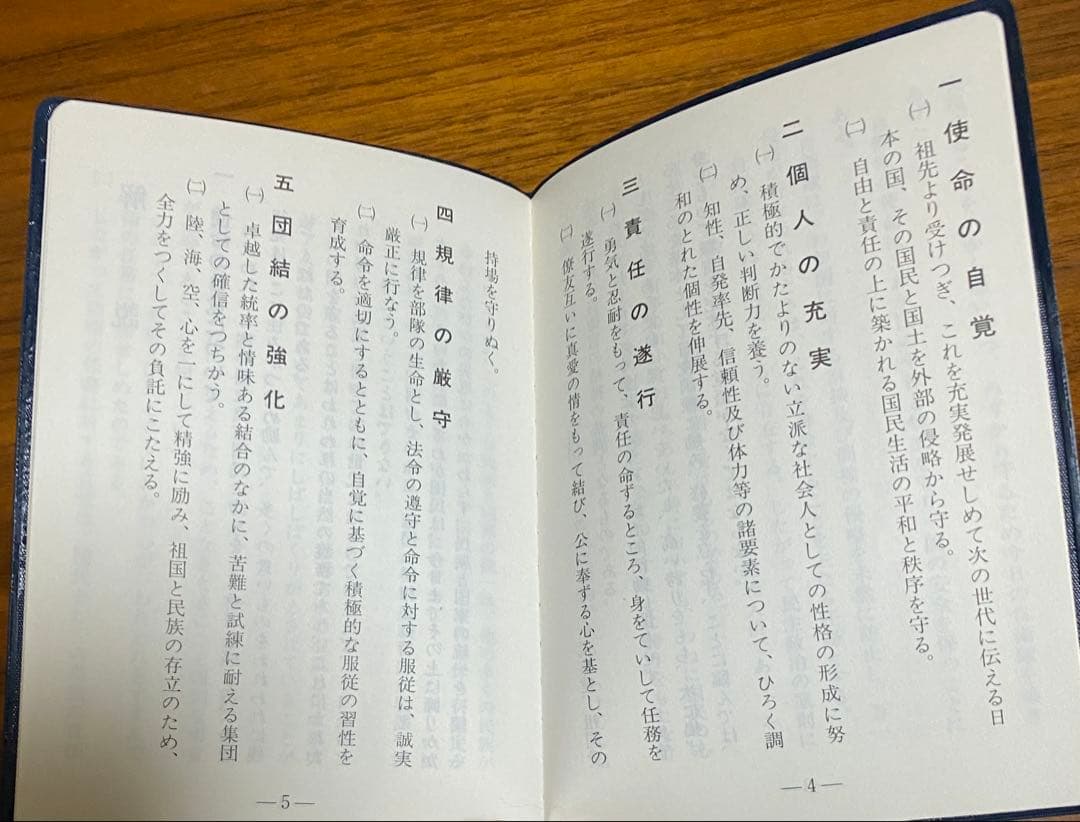 一 使命の自覚
㈠ 祖先より受けつぎ、これを充実発展せしめて次の世代に伝える日
本の国、その国民と国土を外部の侵略から守る。
㈡ 自由と責任の上に築かれる国民生活の平和と秩序を守る。
二 個人の充実
㈠ 積極的でかたよりのない立派な社会人としての性格の形成に努
め、正しい判断力を養う。
㈡ 知性、自発率先、信頼性及び体力等の諸要素について、ひろく調
和のとれた個性を伸展する。
三 責任の遂行
㈠ 勇気と忍耐をもって、責任の命ずるところ、身をていして任務を
遂行する。
㈡ 僚友互いに真愛の情をもって結び、公に奉ずる心を基とし、その
—4—
持場を守りぬく。
四 規律の厳守
㈠ 規律を部隊の生命とし、法令の遵守と命令に対する服従は、誠実
厳正に行なう。
㈡ 命令を適切にするとともに、自覚に基づく積極的な服従の習性を
育成する。
五 団結の強化
㈠ 卓越した統率と情味ある結合のなかに、苦難と試練に耐える集団
としての確信をつちかう。
㈡ 陸、海、空、心を一にして精強に励み、祖国と民族の存立のため、
全力をつくしてその負託にこたえる。
—5—